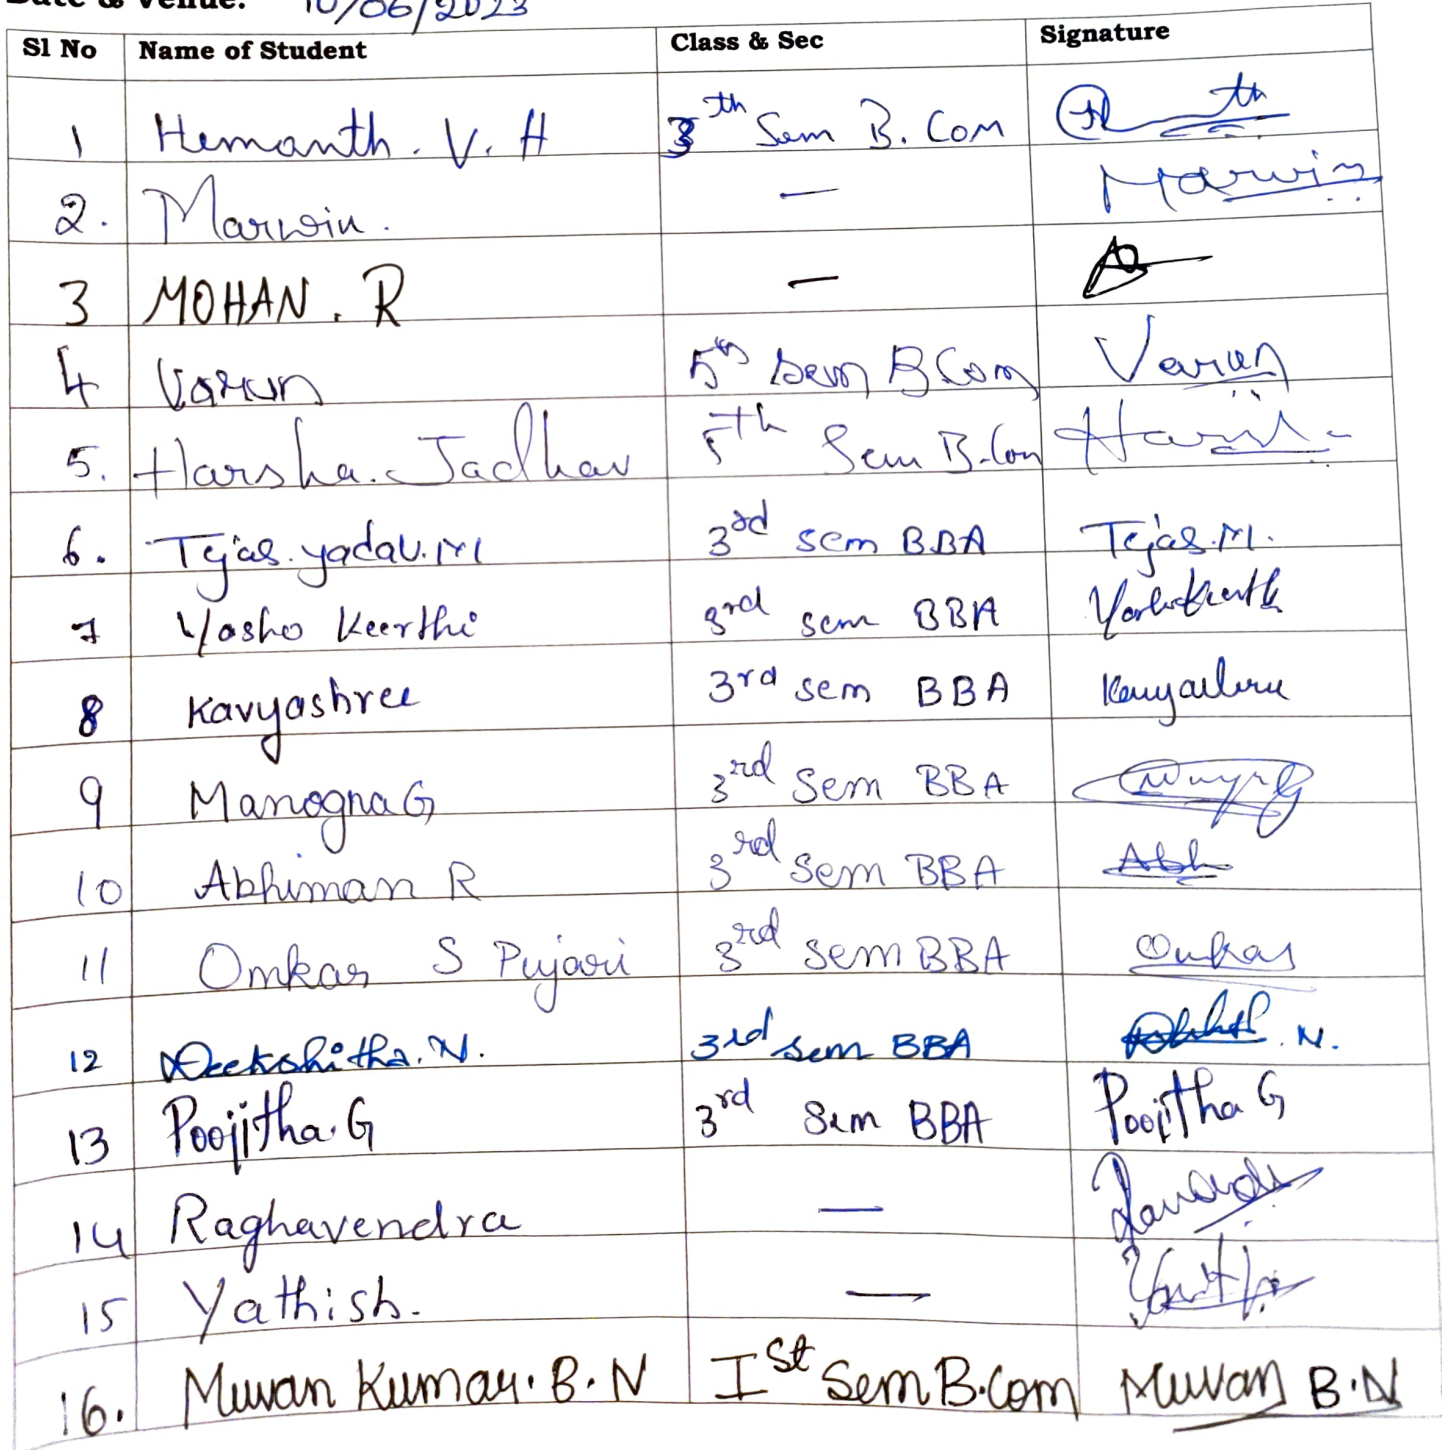 Date & Venue: 10/06/2023
Sl No Name of Student Class & Sec Signature
1 Hemanth. V. H 3th Sem B. Com
2. Marwin. — Marwin
3 MOHAN. R —
4 Varun 5th Sem B Com Varun
5. Harsha. Jadhav 5th Sem B.Com
6. Tejas. yadav. M 3rd sem BBA Tejas. M.
7 Yasho Keerthi 3rd sem BBA
8 Kavyashree 3rd sem BBA
9 Manogna G 3rd Sem BBA
10 Abhiman R 3rd Sem BBA Abh
11 Omkar S Pujari 3rd Sem BBA Omkar
12 Deekshitha. N. 3rd sem BBA N.
13 Poojitha. G 3rd Sem BBA Poojitha G
14 Raghavendra —
15 Yathish. —
16. Muvan Kumar. B. N Ist Sem B.Com Muvan B.N